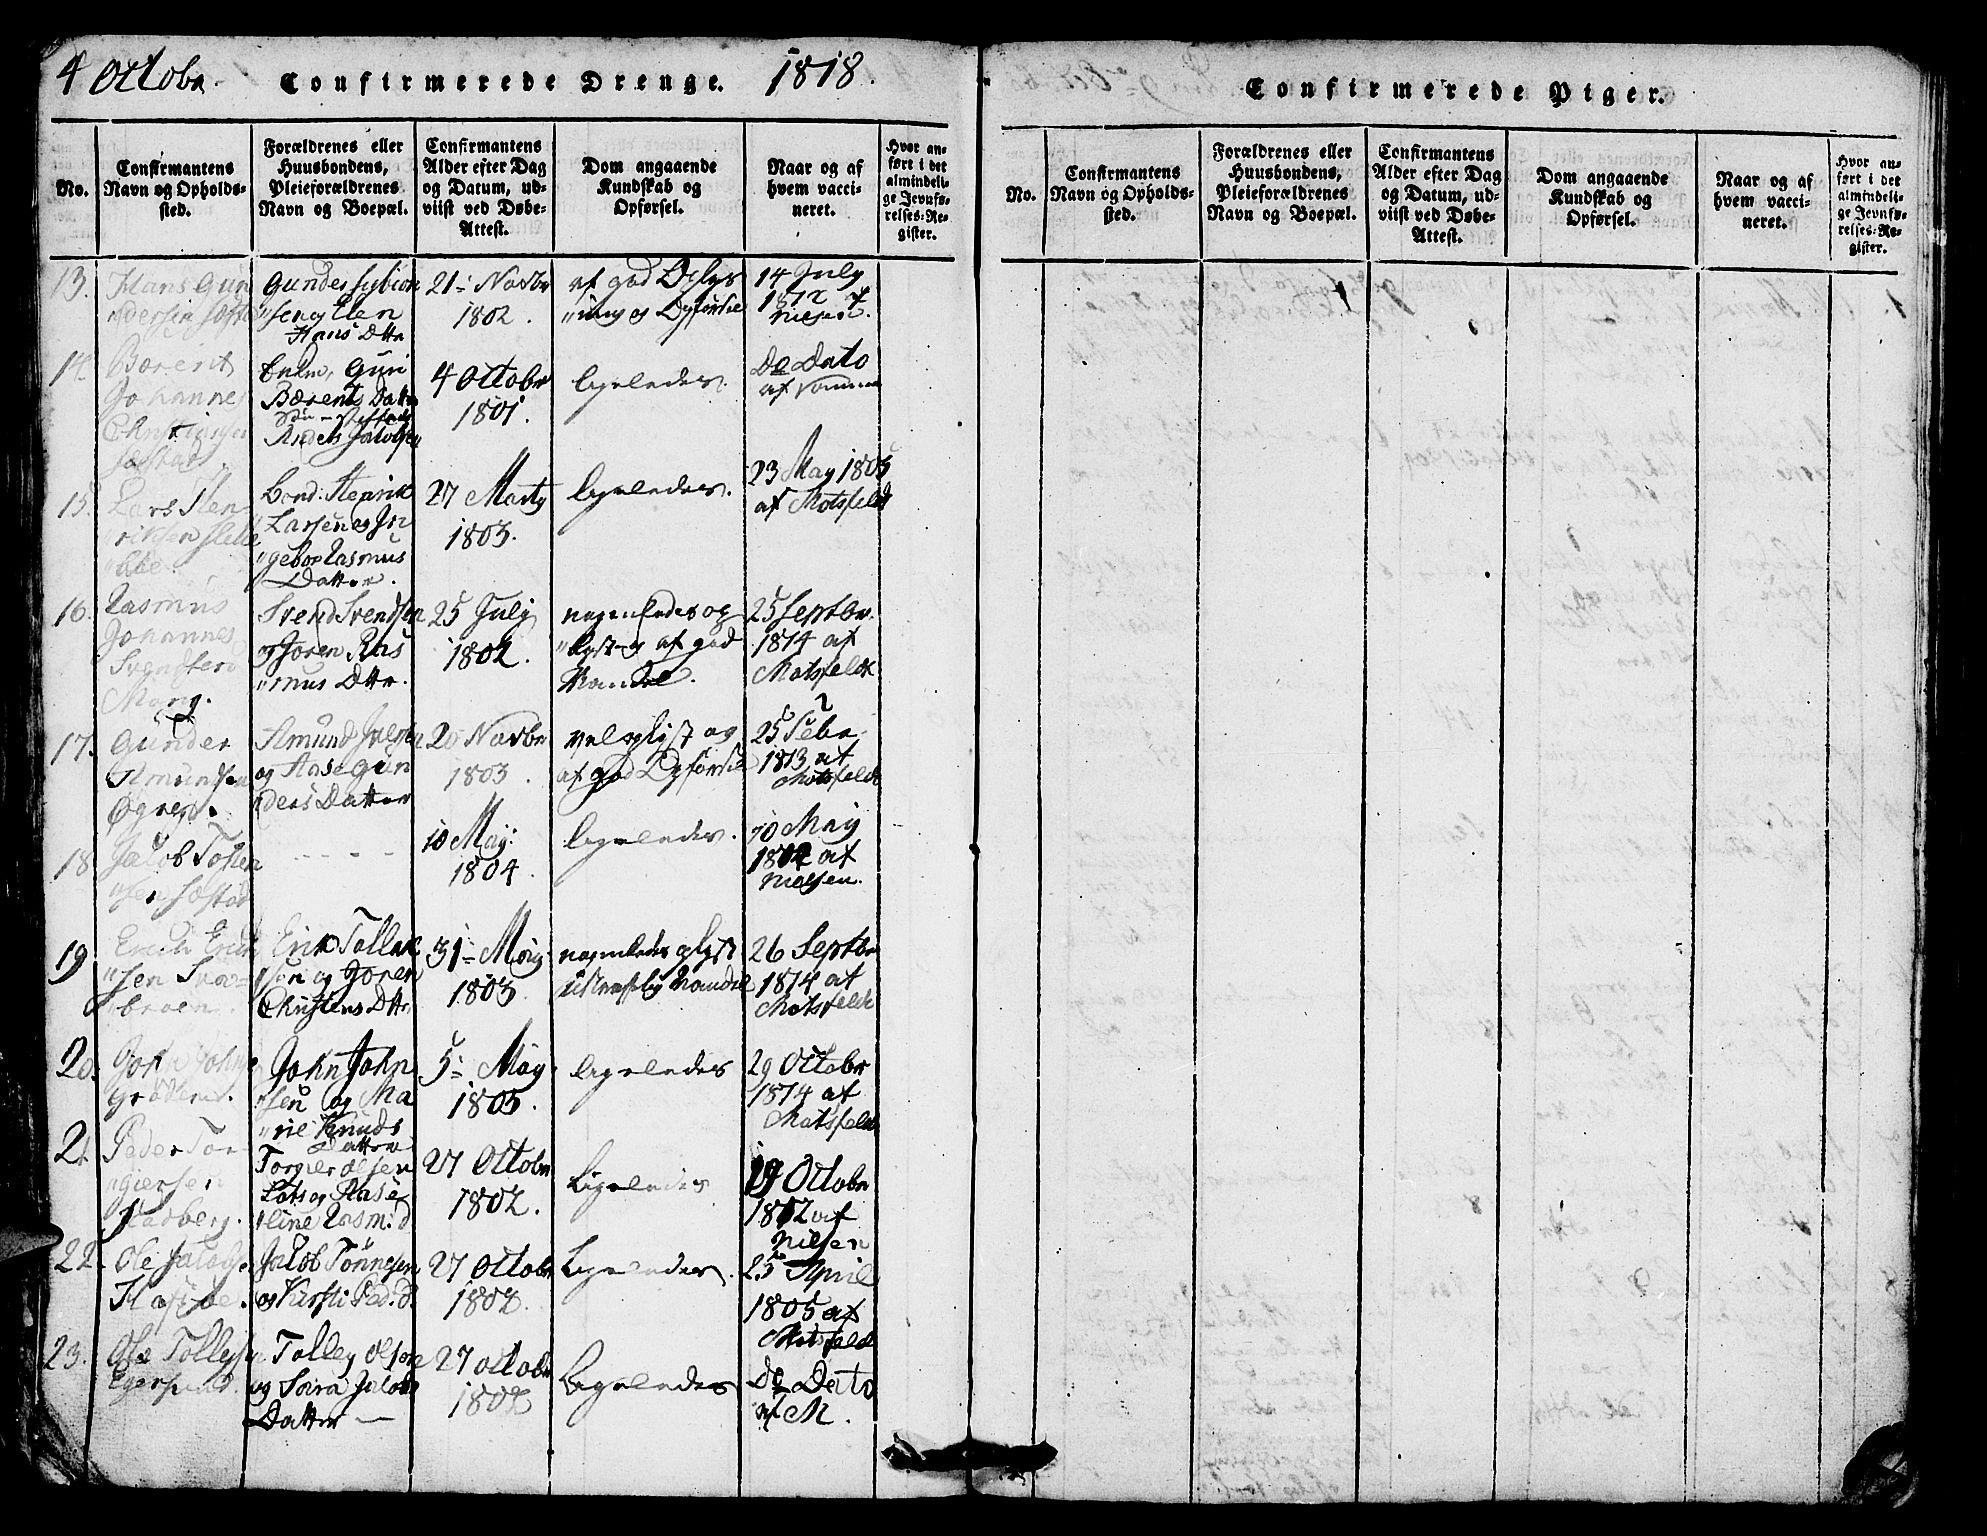 4 Octobr. Confirmerede Drenge. 1818.
No.
Confirmantens
Navn og Opholds-
sted.
Forældrenes eller
Huusbondens,
Pleieforældrenes
Navn og Boepæl.
Confirmantens
Alder efter Dag
og Datum, ud-
viist ved Døbe-
Attest.
Dom angaaende
Kundskab og
Opførsel.
Naar og af
hvem vacci-
neret.
Hvor an-
ført i det
almindeli-
ge Jevnfø-
relses-Re-
gister.
13.
Hans Gun
"dersen
Gunder
"sen og Elen
Hans Dttr
21- Novbr
1802.
af god Oplys
"ning og Opførsel
14 July
1812 af
Nielsen.
14.
Berent
Johannes
Christiansen
Enkm, Guri
Berents Datter
Anders Jacobsen
4 Octobr
1801.
ligeledes.
De Dato
af samme
15.
Lars Hen-
"riksen
Bond: Henrik
Larsen og In
"gebor Rasmus
Datter.
27 Marty
1803.
ligeledes.
23 May 1805
af Motsfeldt
16.
Rasmus
Johannes
Svendsen
Svend Svendsen
og Joren Ras
"mus Dttr.
25 July
1802.
nogenledes op
"lyst og af god
Vandel.
25 Septbr.
1814 af
Motsfeldt
17.
Gunder
Amundsen
Øgrei.
Amund
og Aase Gun
"ders Datter
20 Novbr
1803.
vel oplyst og
af god Opførsel
25 Febr.
1813 af
Motsfeldt
18
Jacob Tosten
"sen Sæstad
- - - -
10 May:
1804.
ligeledes.
10 May
1812 af
Nielsen.
19
Erich Erich
"sen Svaa-
"broen.
Erik Tollak
"sen og Joren
Christens Dttr
31- May
1803.
nogenledes oplyst
ustraffelig Vandel
26 Septbr
1814 af
Motsfeldt
20.
John John
Grøtem.
John John
"sen og Ma
"rie Knuds
Datter
5- May
1803.
ligeledes
29 Octobr
1814 af
Motsfeldt
21.
Peder Tor
"giersen
Stadberg.
Torgier Olsen
Lots og Aase
"line Rasm: d.
27 Octobr
1802.
Ligeledes
19 Octobr
1812 af
Nielsen
22.
Ole Jacobse
Jacob Tønnesen
og Kirsti Ped: d.
27 Octobr
1802.
Ligeledes.
25 April
1805 af
Motsfeldt
23.
Ole Tollefsen
Egersund.
Tollev Olsen
og Sara Jacobs
Datter —
27 Octobr
1802
Ligeledes
De Dato
af M.
Confirmerede Piger.
No.
Confirmantens
Navn og Opholds-
sted.
Forældrenes eller
Huusbondens,
Pleieforældrenes
Navn og Boepæl.
Confirmantens
Alder efter Dag
og Datum, ud-
viist ved Døbe-
Attest.
Dom angaaende
Kundskab og
Opførsel.
Naar og af
hvem vacci-
neret.
Hvor an-
ført i det
almindeli-
ge Jevnfø-
relses-Re-
gister.